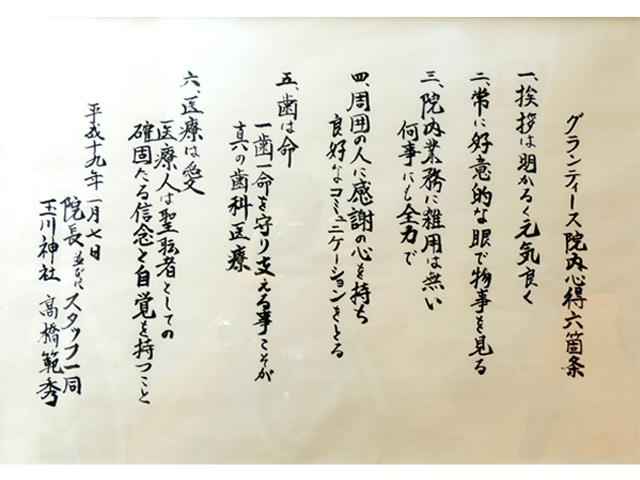 グランティース院内心得六箇条
一、挨拶は明かるく元気良く
二、常に好意的な眼で物事を見る
三、院内業務に雑用は無い
何事にも全力で
四、周囲の人に感謝の心を持ち
良好なコミュニケーションをとる
五、歯は命
一歯一命を守り支える事こそが
真の歯科医療
六、医療は愛
医療人は聖職者としての
確固たる信念と自覚を持つこと
平成十九年一月七日
院長並びにスタッフ一同
玉川神社 高橋範秀